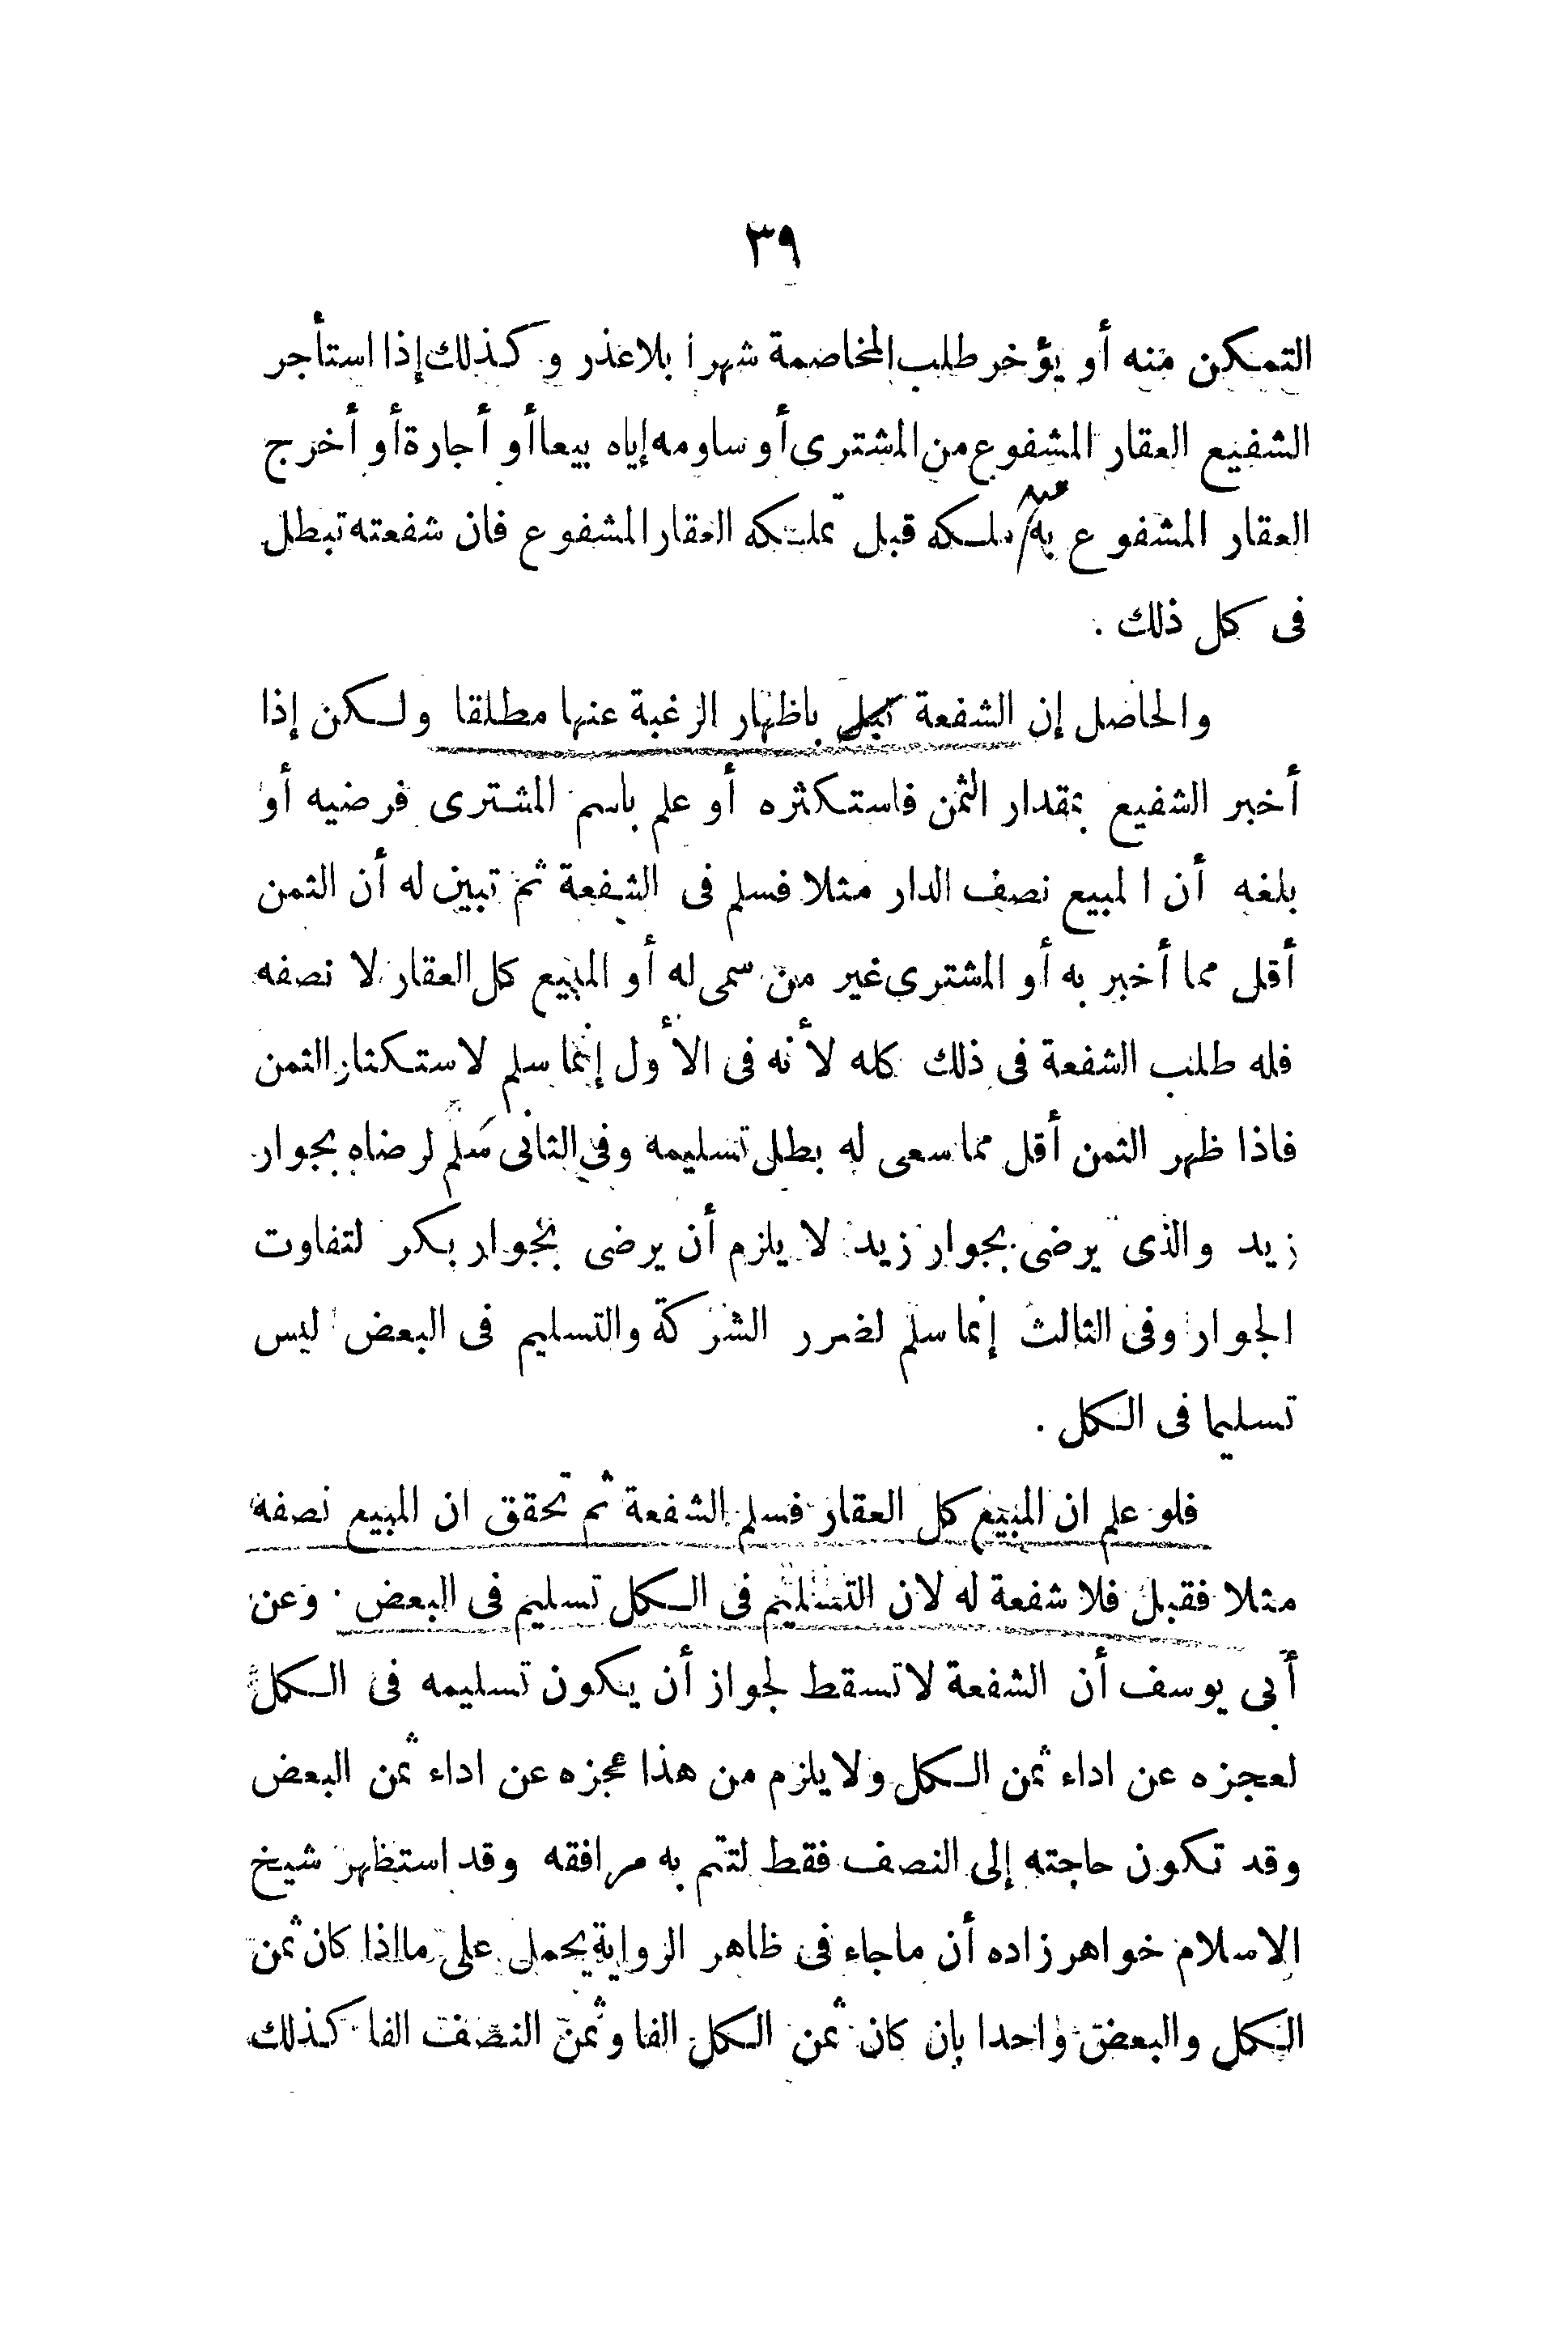 ٣٩
التمكن منه أو يؤخر طلب المخاصمة شهرا بلا عذر و كذلك إذا استأجر
الشفيع العقار المشفوع من المشترى أو ساومه إياه بيعا أو أجارة أو أخرج
العقار المشفوع به ملكه قبل تملكه العقار المشفوع فان شفعته تبطل
فى كل ذلك .
والحاصل إن الشفعة باظهار الرغبة عنها مطلقا ولكن إذا
أخبر الشفيع بمقدار الثمن فاستكثره أو علم باسم المشترى فرضيه أو
بلغه أن المبيع نصف الدار مثلا فسلم فى الشفعة ثم تبين له أن الثمن
أقل مما أخبر به أو المشترى غير من سمى له أو المبيع كل العقار لا نصفه
فله طلب الشفعة فى ذلك كله لأنه فى الأول إنما سلم لاستكثار الثمن
فاذا ظهر الثمن أقل مما سعى له بطل تسليمه وفى الثانى سلم لرضاه بجوار
زيد والذى يرضى بجوار زيد لا يلزم أن يرضى بجوار بكر لتفاوت
الجوار وفى الثالث إنما سلم لضرر الشركة والتسليم فى البعض ليس
تسليما فى الكل .
فلو علم ان المبيع كل العقار فسلم الشفعة ثم تحقق ان المبيع نصفه
مثلا فقبل فلا شفعة له لان التسليم فى الكل تسليم فى البعض . وعن
أبى يوسف أن الشفعة لا تسقط لجواز أن يكون تسليمه فى الكل
لعجزه عن اداء ثمن الكل ولا يلزم من هذا عجزه عن اداء ثمن البعض
وقد تكون حاجته إلى النصف فقط لتتم به مرافقه وقد استظهر شيخ
الاسلام خواهر زاده أن ما جاء فى ظاهر الرواية يحمل على ما اذا كان ثمن
الكل والبعض واحدا بان كان ثمن الكل الفا وثمن النصف الفا كذلك